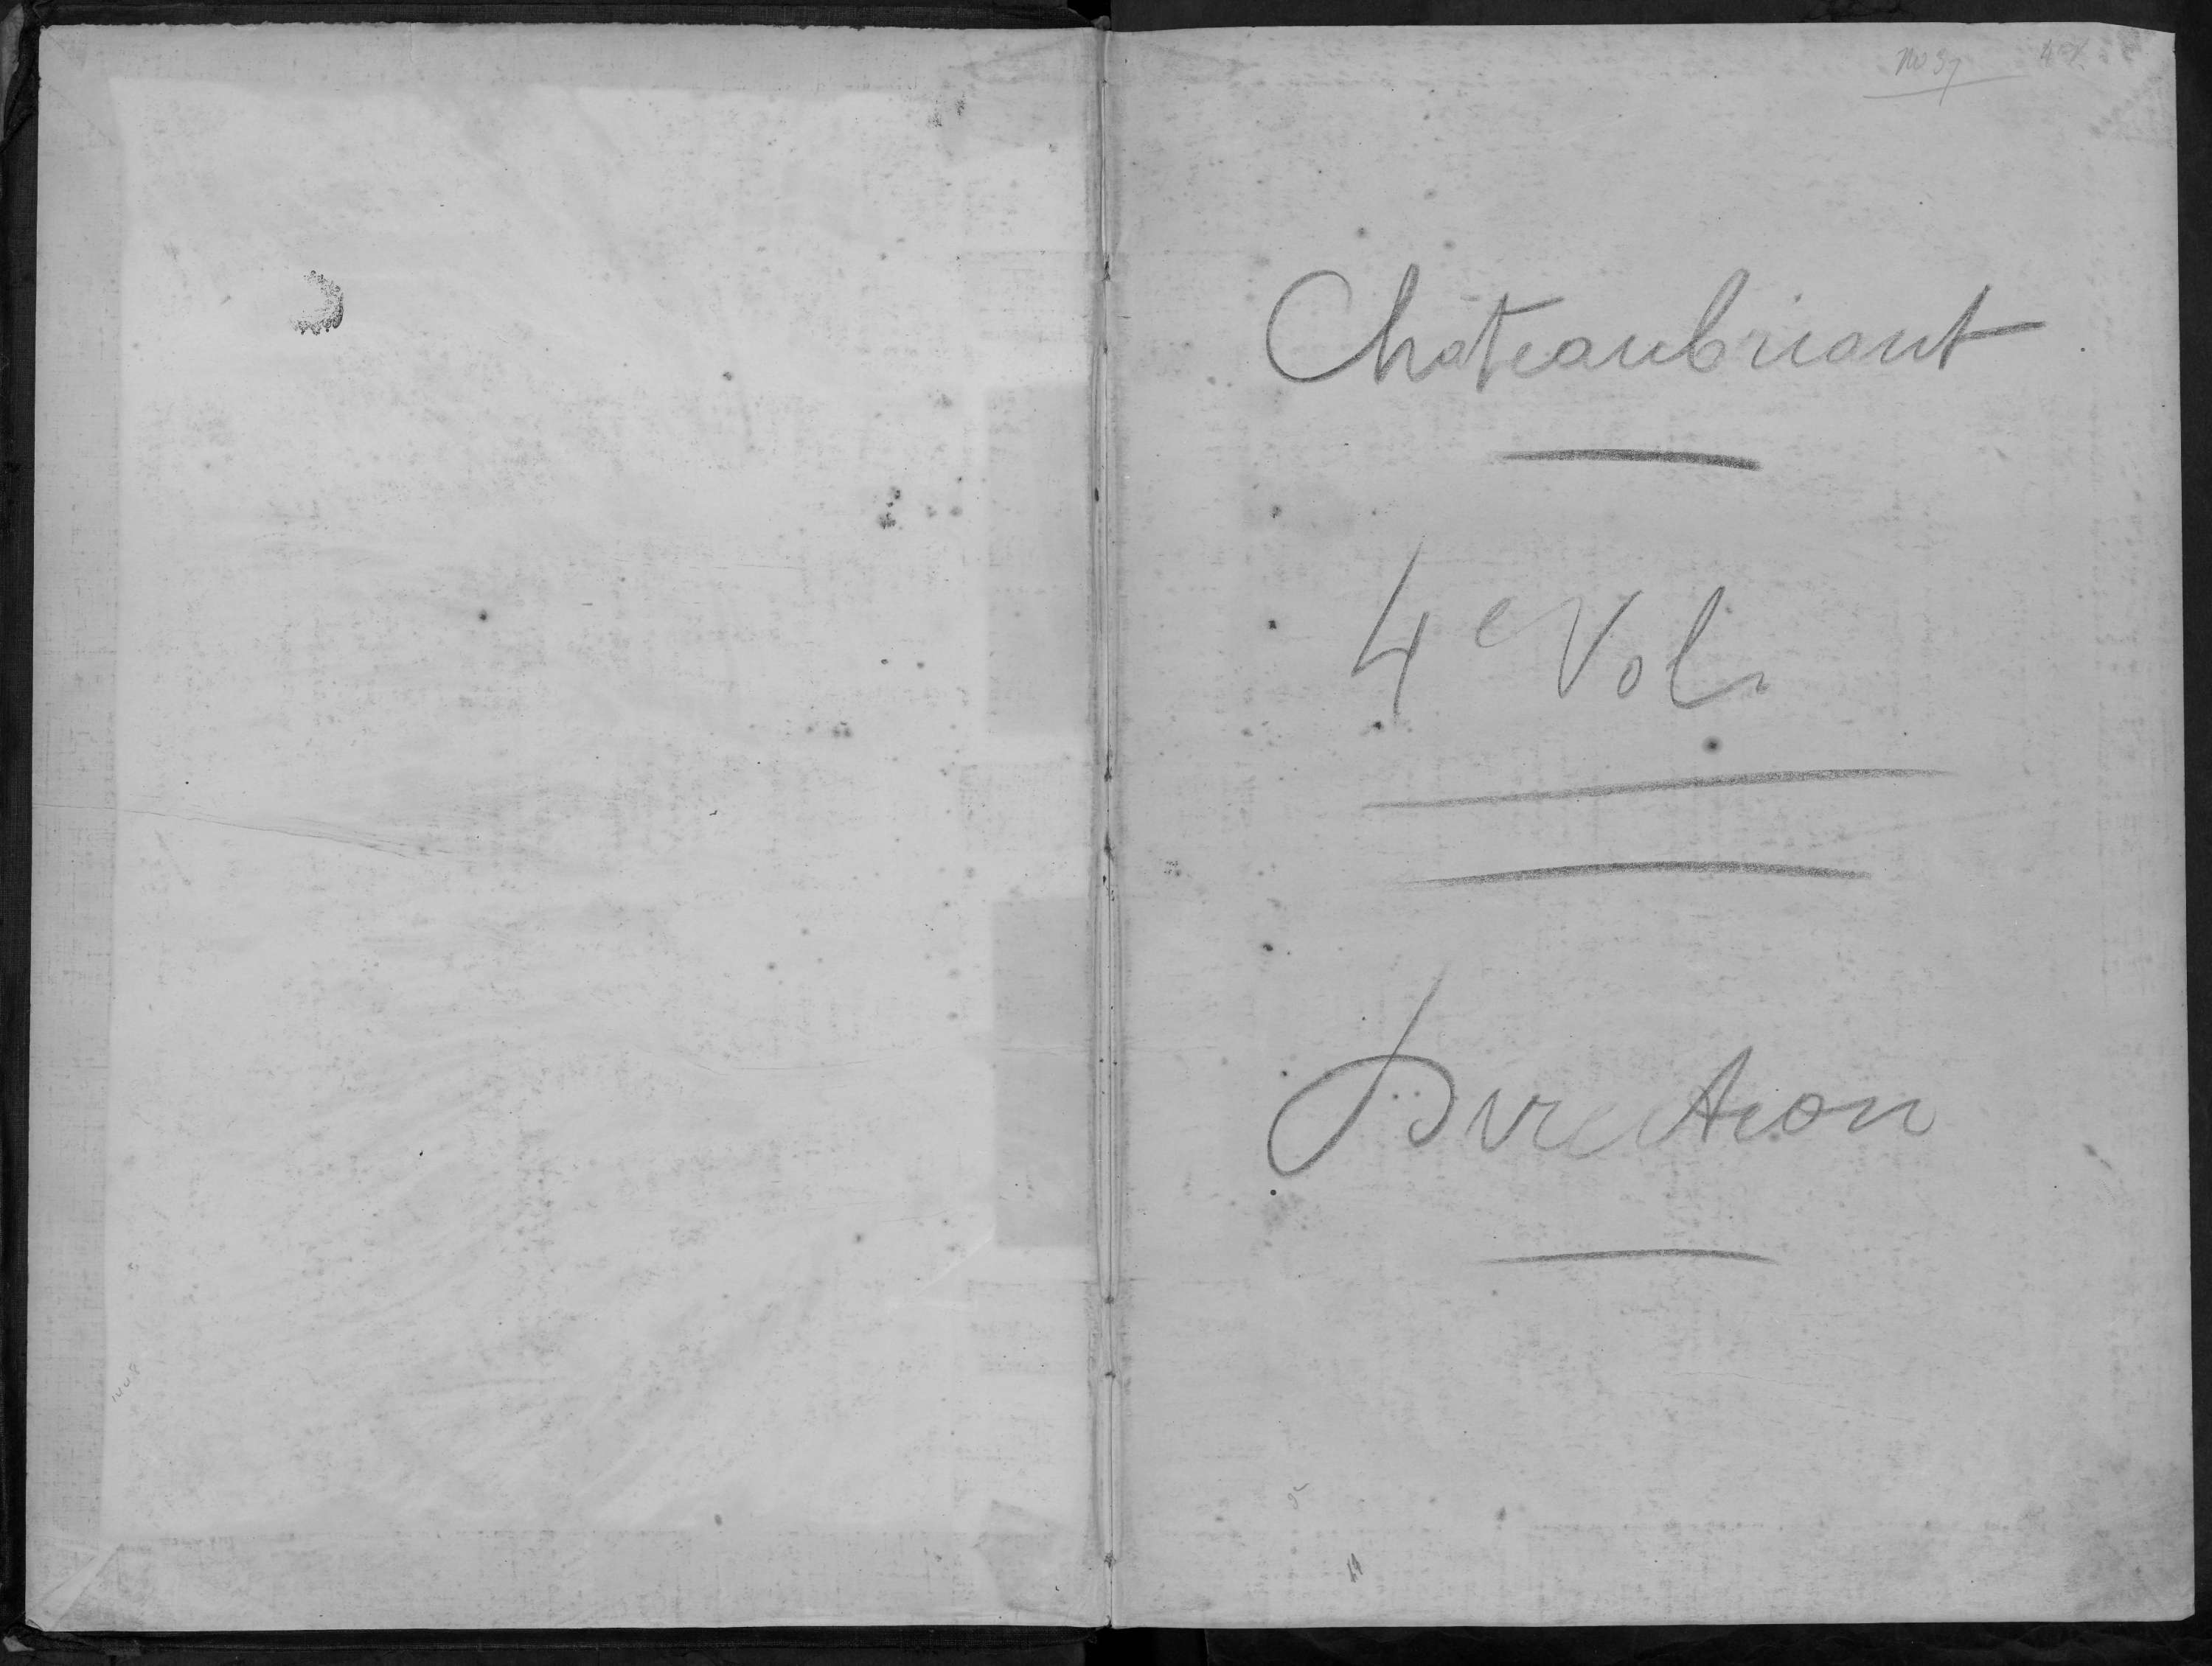 Châteaubriant
4e Vol.
Direction